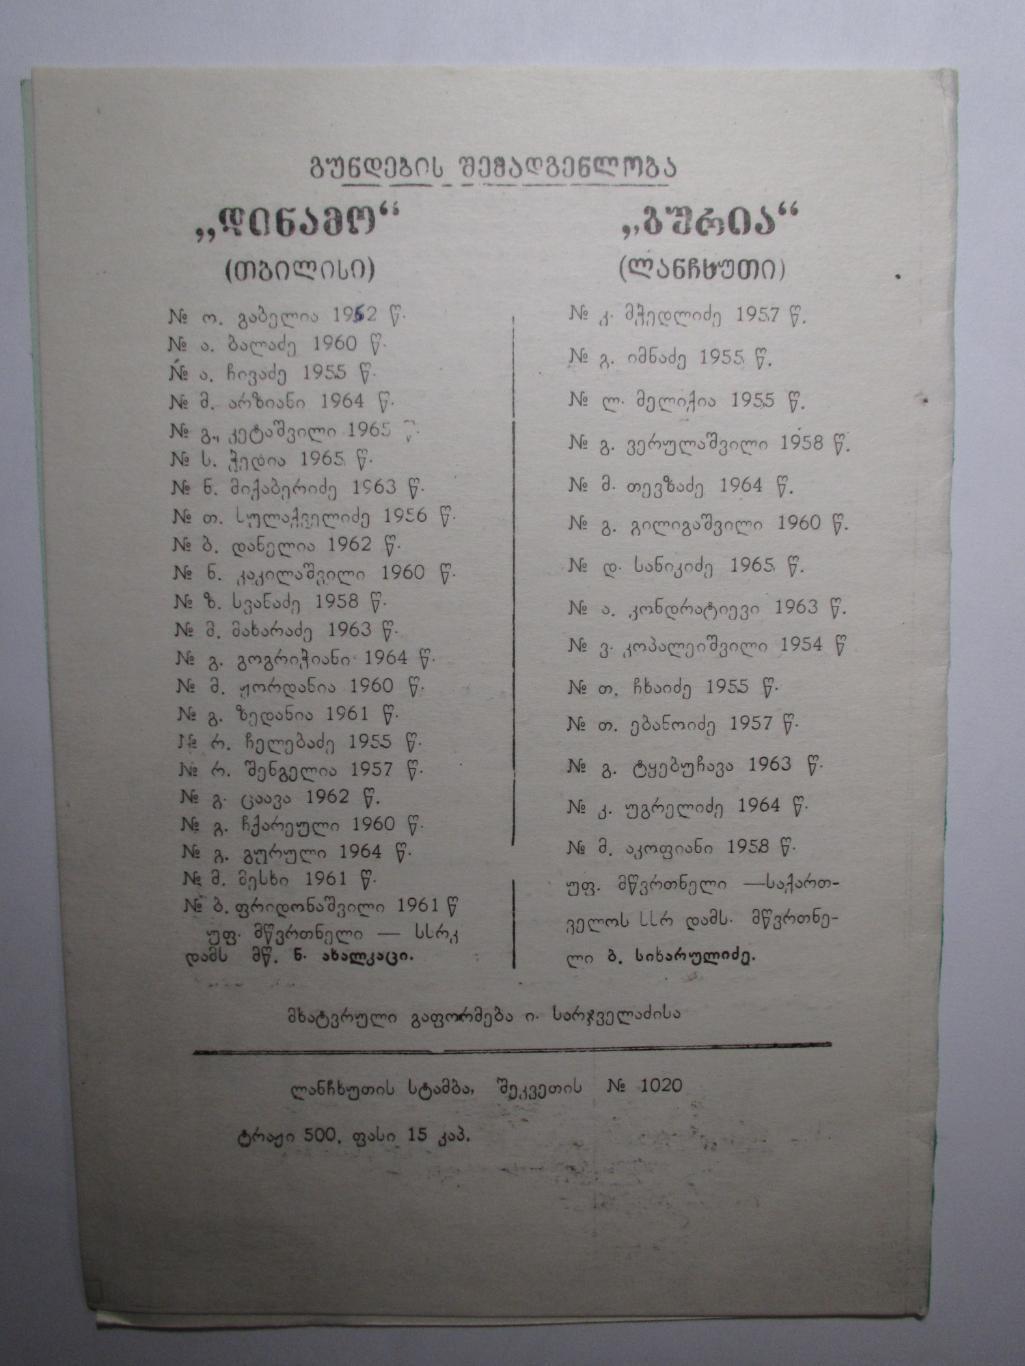 გუნდების შემადგენლობა
„დინამო“
(თბილისი)
№ ო. გაბელია 1952 წ.
№ ა. ბალაძე 1960 წ.
№ ა. ჩივაძე 1955 წ.
№ მ. არზიანი 1964 წ.
№ გ. კეტაშვილი 1965 წ.
№ ს. ჭედია 1965 წ.
№ ნ. მიქაბერიძე 1963 წ.
№ თ. სულაქველიძე 1956 წ.
№ ბ. დანელია 1962 წ.
№ ნ. კაკილაშვილი 1960 წ.
№ ზ. სვანაძე 1958 წ.
№ მ. მახარაძე 1963 წ.
№ გ. გოგრიჭიანი 1964 წ.
№ მ. ჟორდანია 1960 წ.
№ გ. ზედანია 1961 წ.
№ რ. ჩელებაძე 1955 წ.
№ რ. შენგელია 1957 წ.
№ გ. ცაავა 1962 წ.
№ გ. ჩქარეული 1960 წ.
№ გ. გურული 1964 წ.
№ მ. მესხი 1961 წ.
№ ბ. ფრიდონაშვილი 1961 წ
უფ. მწვრთნელი — სსრკ
დამს მწ. ნ. ახალკაცი.
„გურია“
(ლანჩხუთი)
№ კ. მჭედლიძე 1957 წ.
№ გ. იმნაძე 1955 წ.
№ ლ. მელიქია 1955 წ.
№ გ. ვერულაშვილი 1958 წ.
№ მ. თევზაძე 1964 წ.
№ გ. გილიგაშვილი 1960 წ.
№ დ. სანიკიძე 1965 წ.
№ ა. კონდრატიევი 1963 წ.
№ ვ. კოპალეიშვილი 1954 წ
№ თ. ჩხაიძე 1955 წ.
№ თ. ებანოიძე 1957 წ.
№ გ. ტყებუჩავა 1963 წ.
№ კ. უგრელიძე 1964 წ.
№ მ. აკოფიანი 1958 წ.
უფ. მწვრთნელი —საქართ-
ველოს სსრ დამს. მწვრთნე-
ლი ბ. სიხარულიძე.
მხატვრული გაფორმება ი. სარჯველაძისა
ლანჩხუთის სტამბა, შეკვეთის № 1020
ტრაჟი 500, ფასი 15 კაპ.